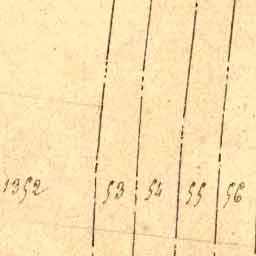 1352 53 54 55 56